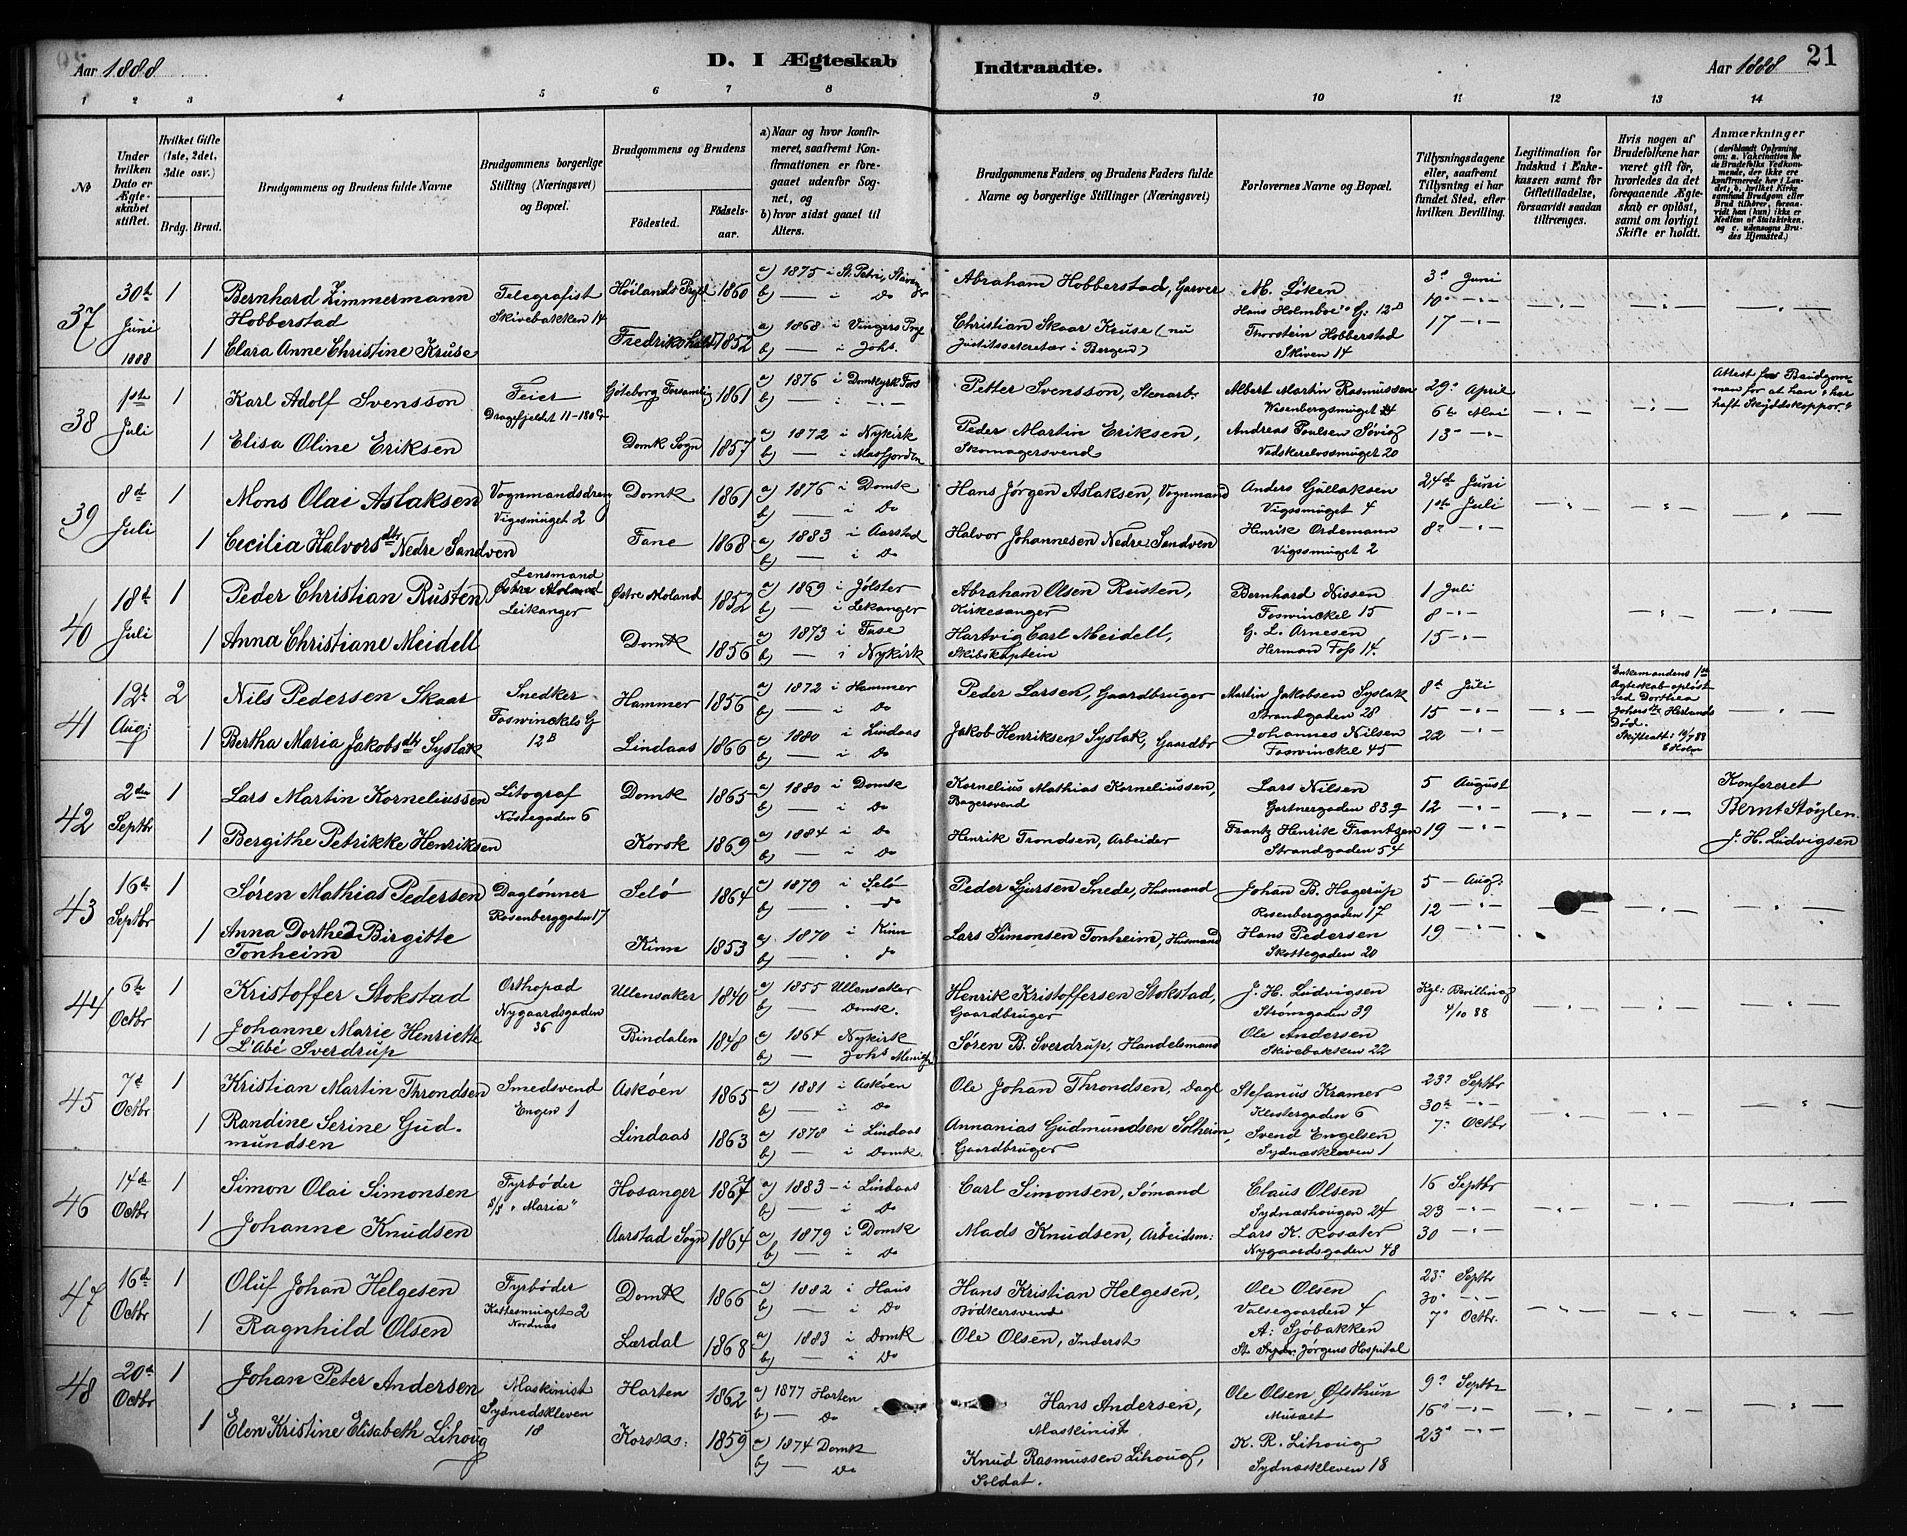 Aar 1888
D. I Ægteskab
Indtraadte.
Aar 1888
21
1 2 3 4 5 6 7 8 9 10 11 12 13 14
No
Under hvilken Dato er Ægteskabet stiftet.
Hvilket Gifte (1ste, 2det, 3die osv.)
Brdg. Brud.
Brudgommens og Brudens fulde Navne
Brudgommens borgerlige Stilling (Næringsvei) og Bopæl.
Brudgommens og Brudens
Fødested.
Fødselsaar.
a) Naar og hvor konfirmeret, saafremt Konfirmationen er foregaaet udenfor Sognet, og
b) hvor sidst gaaet til Alters.
Brudgommens Faders, og Brudens Faders fulde Navne og borgerlige Stillinger (Næringsvei)
Forlovernes Navne og Bopæl.
Tillysningsdagene eller, saafremt Tillysning ei har fundet Sted, efter hvilken Bevilling.
Legitimation for Indskud i Enkekassen samt for Giftetilladelse, forsaavidt saadan tiltrænges.
Hvis nogen af Brudefolkene har været gift, hvorledes da det foregaaende Ægteskab er opløst, samt om lovligt Skifte er holdt.
Anmærkninger (deriblandt Oplysning om: a. Vakcination for de Brudefolks Vedkommende, der ikke ere konfirmerede her i Landet; b. hvilket Kirkesamfund Brudgom eller Brud tilhører, forsaavidt han (hun) ikke er Medlem af Statskirken, og c. udensogns Brudes Hjemsted.)
37 30te Juni 1888 1
Bernhard Zimmermann Hobberstad
Telegrafist Skivebakken 14
Høilands Prgld 1860
a) 1875 i St. Petri, Stavanger
b) — i Do
Abraham Hobberstad, Garver
M. Løken
Hans Holmboes G. 12B
3die Juni
10 — " —
17 — " —
1 Clara Anne Christine Kruse
Fredrikshald 1852
a) 1868 i Vingers Prgl
b) — i Johs.
Christian Skaar Kruse (nu Justitssekretær i Bergen)
Thorstein Hobberstad
Skiven 14
38 1ste Juli 1
Karl Adolf Svensson
Feier
Dragefjeldet 11-180
Göteborg Forsamling 1861
a) 1876 i Domkyrk Fors
b) — " —
Petter Svensson, Stenarb.
Albert Martin Rasmussen
Wesenbergsmuget
29 April
6te Mai
13 — " —
Attest for Brudgommen for at han "har haft Skyddskoppor."
1 Elisa Oline Eriksen
Domk Sogn 1857
a) 1872 i Nykirk
b) — i Masfjorden
Peder Martin Eriksen, Skomagersvend
Andreas Poulsen Søvig
Vadskerelvssmuget 20
39 8de Juli 1
Mons Olai Aslaksen
Vognmandsdreng
Vigesmuget 2
Domk 1861
a) 1876 i Domk
b) — i Do
Hans Jørgen Aslaksen, Vognmand
Anders Gullaksen
Vigssmuget 4
24de Juni
1ste Juli
8 — " —
1 Cecilia Halvorsdtr Nedre Sandven
Fane 1868
a) 1883 i Aarstad
b) — i Do
Halvor Johannesen Nedre Sandven
Henrik Ordemann
Vigssmuget 2
40 18de Juli 1
Peder Christian Rusten
Lensmand
Østre Moland
Leikanger
Østre Moland 1852
a) 1869 i Jølster
b) — i Lekanger
Abraham Olsen Rusten, Kirkesanger
Bernhard Nissen
Foswinckel 15
1 Juli
8 — " —
15 — " —
1 Anna Christiane Meidell
Domk 1856
a) 1873 i Fuse
b) — i Nykirk
Hartvig Carl Meidell, Skibskaptein
G. L. Arnesen
Herman Foss 14.
41 12te Aug: 2
Nils Pedersen Skaar
Snedker
Foswinckels G
12B
Hammer 1856
a) 1872 i Hammer
b) — i Do
Peder Larsen, Gaardbruger
Martin Jakobsen Syslak
Strandgaden 28
8de Juli
15 — " —
22 — " —
Enkemandens 1ste Ægteskab opløst ved Dorthea Johansdtr Herlands Død.
Skifteatt: 14/7 88
E Holm
1 Bertha Maria Jakobsdtr Syslak
Lindaas 1866
a) 1880 i Lindaas
b) — i Do
Jakob Henriksen Syslak, Gaardbr
Johannes Nilsen
Foswinckel 45
42 2den Septbr 1
Lars Martin Korneliussen
Litograf
Nøstegaden 6
Domk 1865
a) 1880 i Domk
b) — i Do
Kornelius Mathias Korneliussen, Bagersvend
Lars Nilsen
Gartnergaden 83
5 August
12 — " —
19 — " —
Konfereret
Bernt Støylen.
J. H. Ludvigsen
1 Bergithe Petrikke Henriksen
Korsk 1869
a) 1884 i Do
b) — i Do
Henrik Trondsen, Arbeider
Frantz Henrik Frantzen
Strandgaden 54
43 16de Septbr 1
Søren Mathias Pedersen
Daglønner
Rosenberggaden 17
Selø 1864
a) 1879 i Selø
b) — " Do
Peder Sjursen Snede, Husmand
Johan B. Hagerup
Rosenberggaden 17
5 — Aug:
12 — " —
19 — " —
1 Anna Dorthea Birgitte Tonheim
Kinn 1853
a) 1870 i Kinn
b) — " do
Lars Simonsen Tonheim, Husmand
Hans Pedersen
Skottegaden 20
44 6te Octbr 1
Kristoffer Stokstad
Orthopæd
Nygaardsgaden
36
Ullensaker 1840
a) 1855 Ullensaker
b) — Domk.
Henrik Kristoffersen Stokstad, Gaardbruger
J. H. Ludvigsen
Strømgaden 39
Kgl: Bevilling
4/10 88
1 Johanne Marie Henriette L'Abé Sverdrup
Bindalen 1848
a) 1864 Nykirk
b) — Johs Menigh
Søren B. Sverdrup, Handelsmand
Ole Andersen
Skivebakken 22
45 7de Octbr 1
Kristian Martin Throndsen
Smedsvend
Engen 1
Askøen 1865
a) 1881 i Askøen
b) — i Do
Ole Johan Throndsen, Dagl
Stefanus Kramer
Klostergaden 6
23 Septbr
30te — " —
7 Octbr
1 Randine Serine Gudmundsen
Lindaas 1863
a) 1878 i Lindaas
b) — i Domk.
Annanias Gudmundsen Solheim, Gaardbruger
Svend Engelsen
Sydnæskleven 1
46 14de Octbr 1
Simon Olai Simonsen
Fyrbøder
S/S "Maria"
Hosanger 1867
a) 1883 — i Lindaas
b) — i Do
Carl Simonsen, Sømand
Claus Olsen
Sydnæshougen 24
16 Septbr
23 — " —
30 — " —
1 Johanne Knudsen
Aarstad Sogn 1864
a) 1879 i Domk
b) — i Do
Mads Knudsen, Arbeidsm:
Lars K. Rosæter
Nygaardsgaden 48
47 16de Octbr 1
Oluf Johan Helgesen
Fyrbøder
Kattesmuget 2
Nordnæs
Domk 1866
a) 1882 i Haus
b) — i Do
Hans Kristian Helgesen, Bødkersvend
Ole Olsen
Valsegaarden 4
23 Septbr
30 — " —
7 Octbr.
1 Ragnhild Olsen
Lærdal 1868
a) 1883 i Domk
b) — i Do
Ole Olsen, Inderst
A: Sjöbakken
St. Jørgens Hospital
48 20de Octbr 1
Johan Peter Andersen
Maskinist
Sydnedskleven
18
Horten 1862
a) 1877 Horten
b) — Do
Hans Andersen, Maskinist
Ole Olsen Øfsthun
Musæet
9 Septbr
16 — " —
23 — " —
1 Elen Kristine Elisabeth Lihoug
Korsk: 1859
a) 1874 Domk
b) — Do
Knud Rasmussen Lihoug, Soldat.
K. R. Lihoug
Sydnæskleven 18